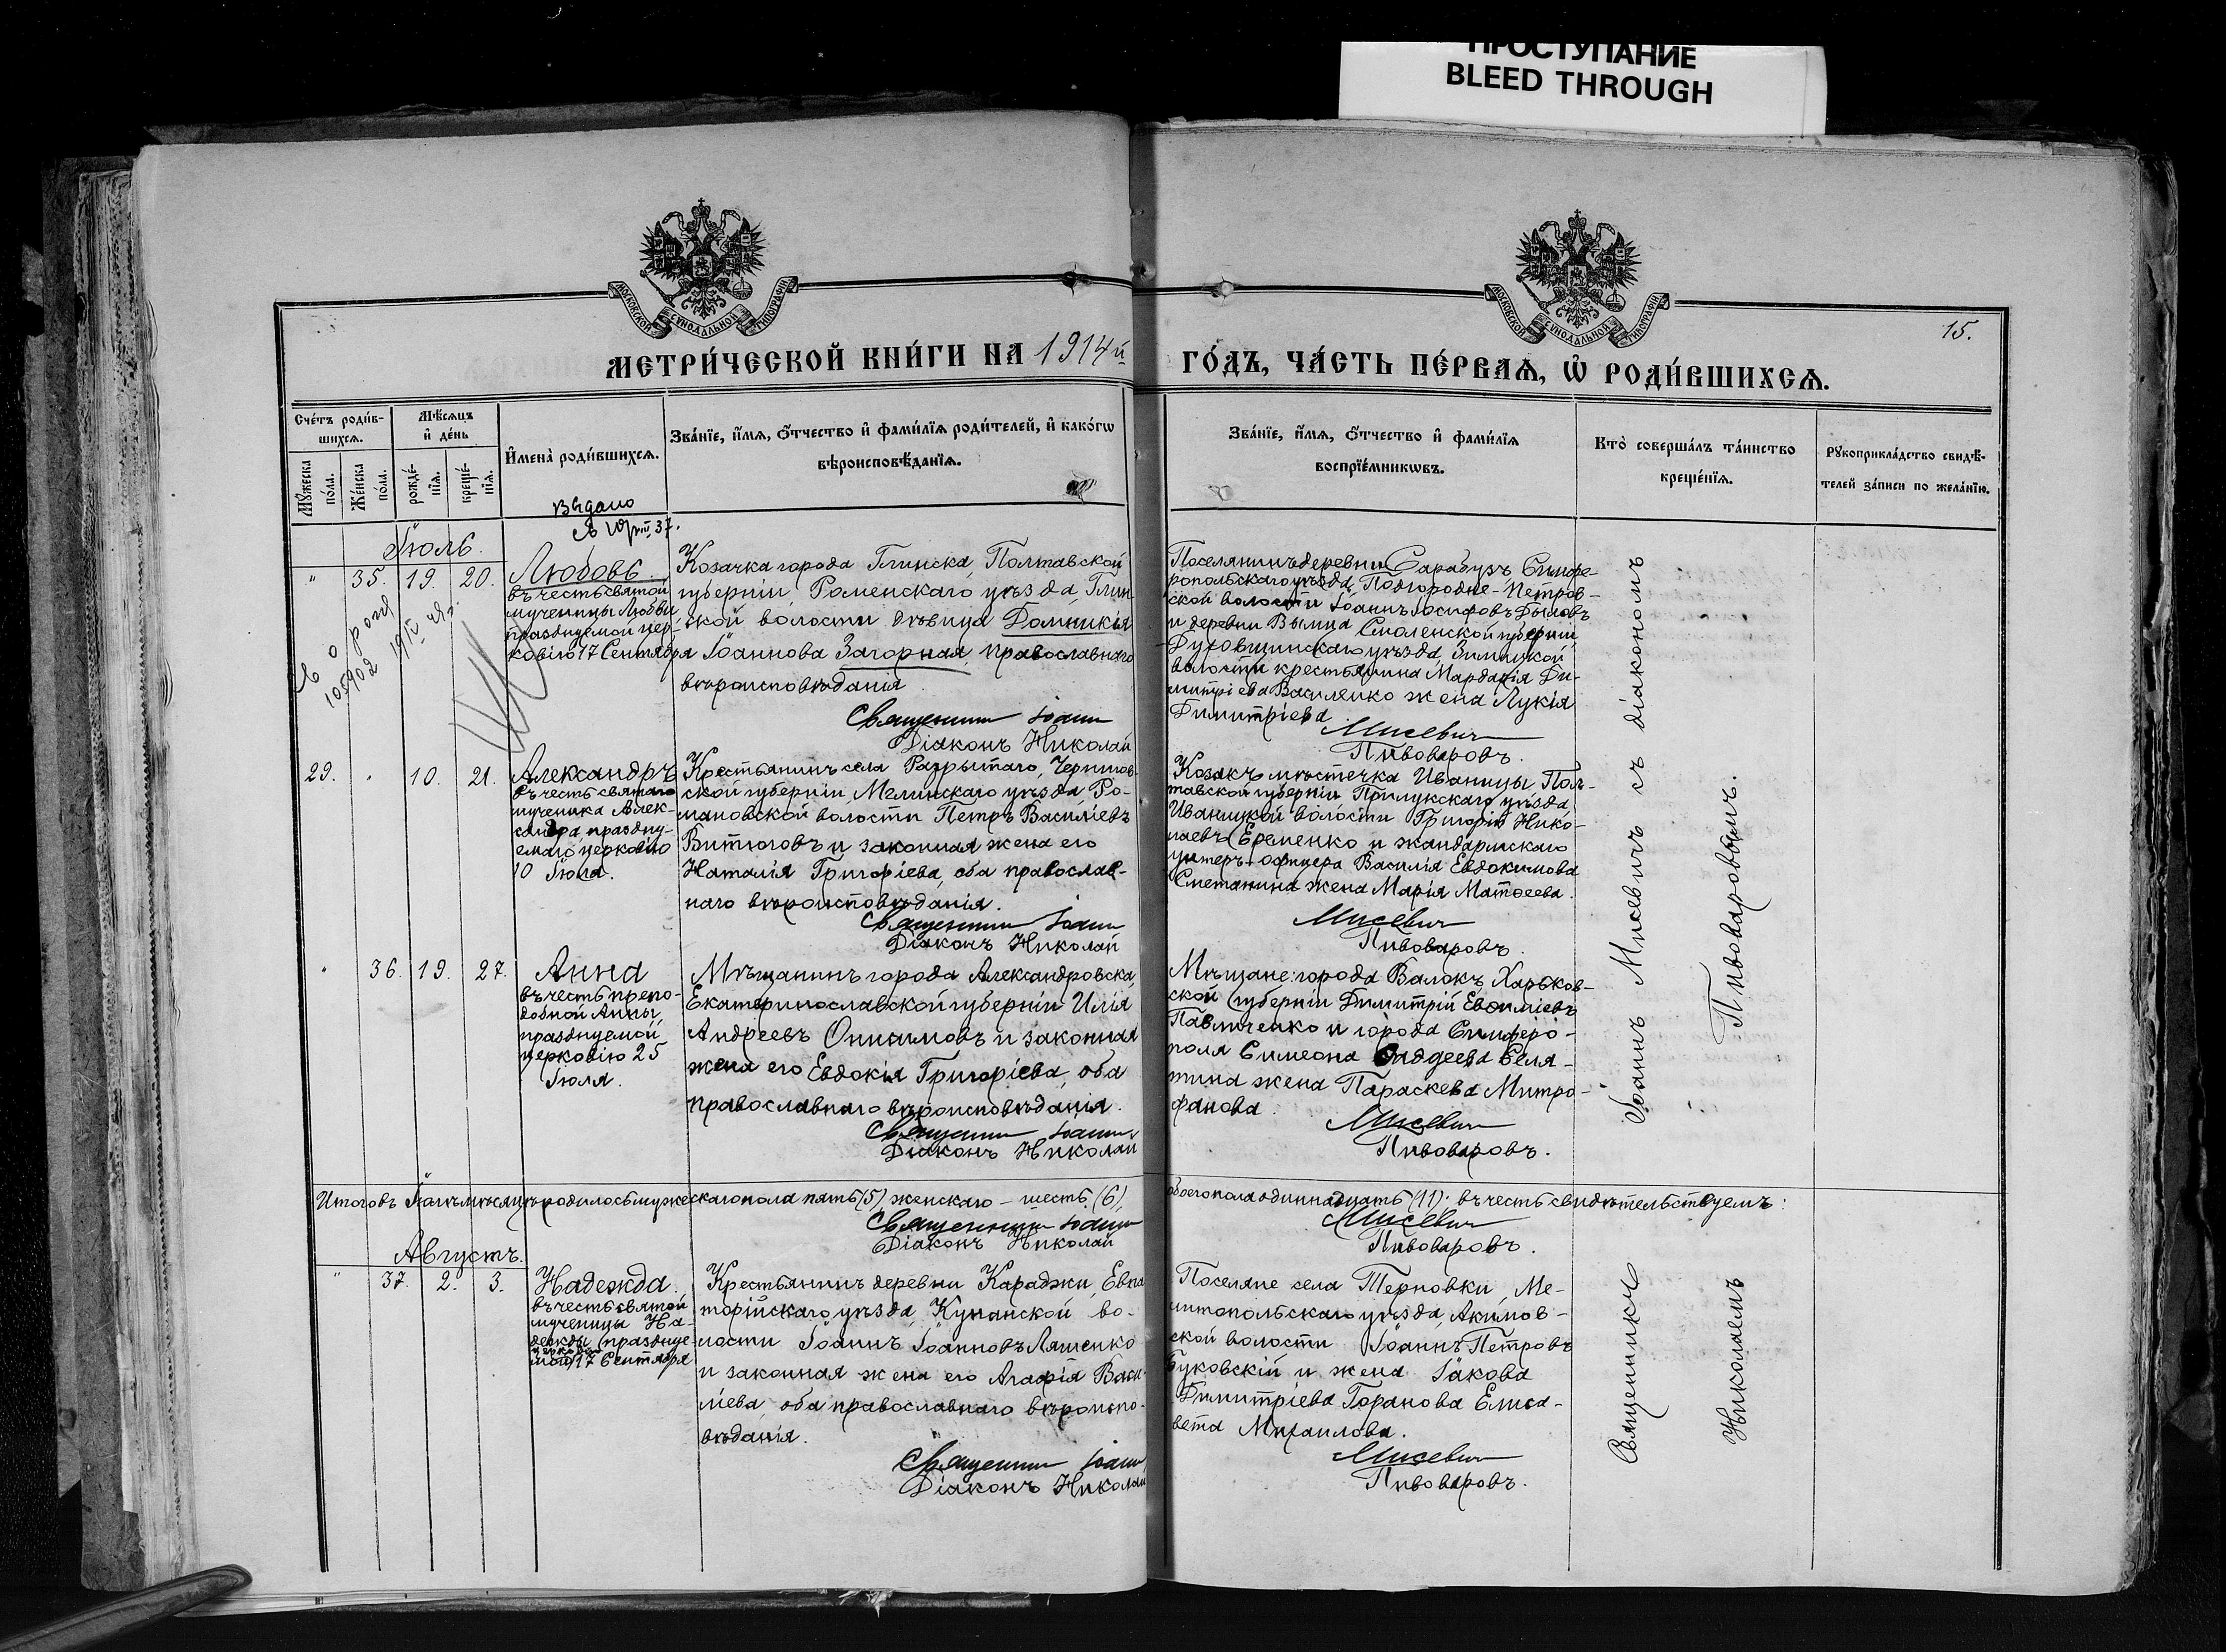 ПРОСТУПАНИЕ
BLEED THROUGH
МОСКОВСКОЙ СѴНОДАЛЬНОЙ ТИПОГРАФІИ
МОСКОВСКОЙ СѴНОДАЛЬНОЙ ТИПОГРАФІИ
15.
МЕТРИ́ЧЕСКОЙ КНИ́ГИ НА 1914й
ГО́ДЪ, ЧА́СТЬ ПЕ́РВАѦ, Ѡ҆ РОДИ́ВШИХСѦ.
Сче́тъ роди́в-
шихсѧ.
Мѣ́сѧцъ
и҆ де́нь
Мꙋ́жеска
по́ла.
Же́нска
по́ла.
рожде́-
нїѧ.
креще́-
нїѧ.
И҆мена̀ роди́вшихсѧ.
Зва́нїе, и҆́мѧ, ѻ҆́тчество и҆ фами́лїѧ роди́телей, и҆ како́гѡ
вѣроисповѣ́данїѧ.
Зва́нїе, и҆́мѧ, ѻ҆́тчество и҆ фами́лїѧ
воспрїе́мникѡвъ.
Кто̀ соверша́лъ та́инство
креще́нїѧ.
Рꙋкоприкла́дство свидѣ́-
телей за́писи по жела́нїю.
Выдано
37.
Іюль.
" 35. 19. 20. Любовь
въ честь святой
мученицы Любви
празднуемой цер-
ковію 17 Сентября
105902
Козачка города Глинска, Полтавской
губерніи, Роменскаго уѣзда, Глин-
ской волости дѣвица Домникія
Іоаннова Загорная, православнаго
вѣроисповѣданія.
Священникъ Іоаннъ
Діаконъ Николай
Поселянинъ деревни Сарабузъ, Симфе-
ропольскаго уѣзда, Подгородне-Петров-
ской волости Іоаннъ Іосифовъ Быловъ
и деревни Вымца Смоленской губерніи
Духовщинскаго уѣзда, Зимицкой
волости крестьянина Мардарія Ди-
митріева Василенко жена Лукія
Димитріева
Мисевичъ
Пивоваровъ.
29. " 10. 21. Александръ
въ честь святаго
мученика Алек-
сандра, праздну-
емаго церковію
10 Іюля.
Крестьянинъ села Разрытаго, Чернигов-
ской губерніи, Мглинскаго уѣзда, Ро-
мановской волости Петръ Василіевъ
Витюговъ и законная жена его
Наталія Григоріева, оба православ-
наго вѣроисповѣданія.
Священникъ Іоаннъ
Діаконъ Николай
Козакъ мѣстечка Иваницы Пол-
тавской губерніи Прилукскаго уѣзда
Иваницкой волости Григорій Нико-
лаевъ Еременко и жандармскаго
унтеръ-офицера Василія Евдокимова
Сметанина жена Марія Матѳеева.
Мисевичъ
Пивоваровъ.
" 36. 19. 27. Анна
въ честь препо-
добной Анны,
празднуемой
церковію 25
Іюля.
Мѣщанинъ города Александровска,
Екатеринославской губерніи Илія
Андреевъ Онисимовъ и законная
жена его Евдокія Григоріева, оба
православнаго вѣроисповѣданія.
Священникъ Іоаннъ
Діаконъ Николай
Мѣщане: города Валокъ, Харьков-
ской губерніи Димитрій Евѳиміевъ
Павличенко и города Симферо-
поля Симеона Ѳаддеева Селя-
тина жена Параскева Митро-
фанова.
Мисевичъ
Пивоваровъ.
Іоаннъ Мисевичъ съ діакономъ
Пивоваровымъ.
Итого въ Іюлѣ мѣсяцѣ родилось мужескаго пола пять (5), женскаго – шесть (6),
обоего пола одиннадцать (11). въ честь свидѣтельствуемъ:
Священникъ Іоаннъ
Діаконъ Николай
Мисевичъ
Пивоваровъ.
Августъ.
" 37. 2. 3. Надежда
въ честь святой
мученицы На-
дежды, праздуе-
мой церковію
17 Сентября
Крестьянинъ деревни Караджи, Евпа-
торійскаго уѣзда, Кунанской во-
лости Іоаннъ Іоанновъ Ляшенко
и законная жена его Агафія Васи-
ліева, оба православнаго вѣроиспо-
вѣданія.
Священникъ Іоаннъ
Діаконъ Николай
Поселяне села Терновки, Ме-
литопольскаго уѣзда, Акимов-
ской волости Іоаннъ Петровъ
Буковскій и жена Іакова
Димитріева Горанова Елиса-
вета Михаилова.
Мисевичъ
Пивоваровъ.
Священникъ
Николаемъ